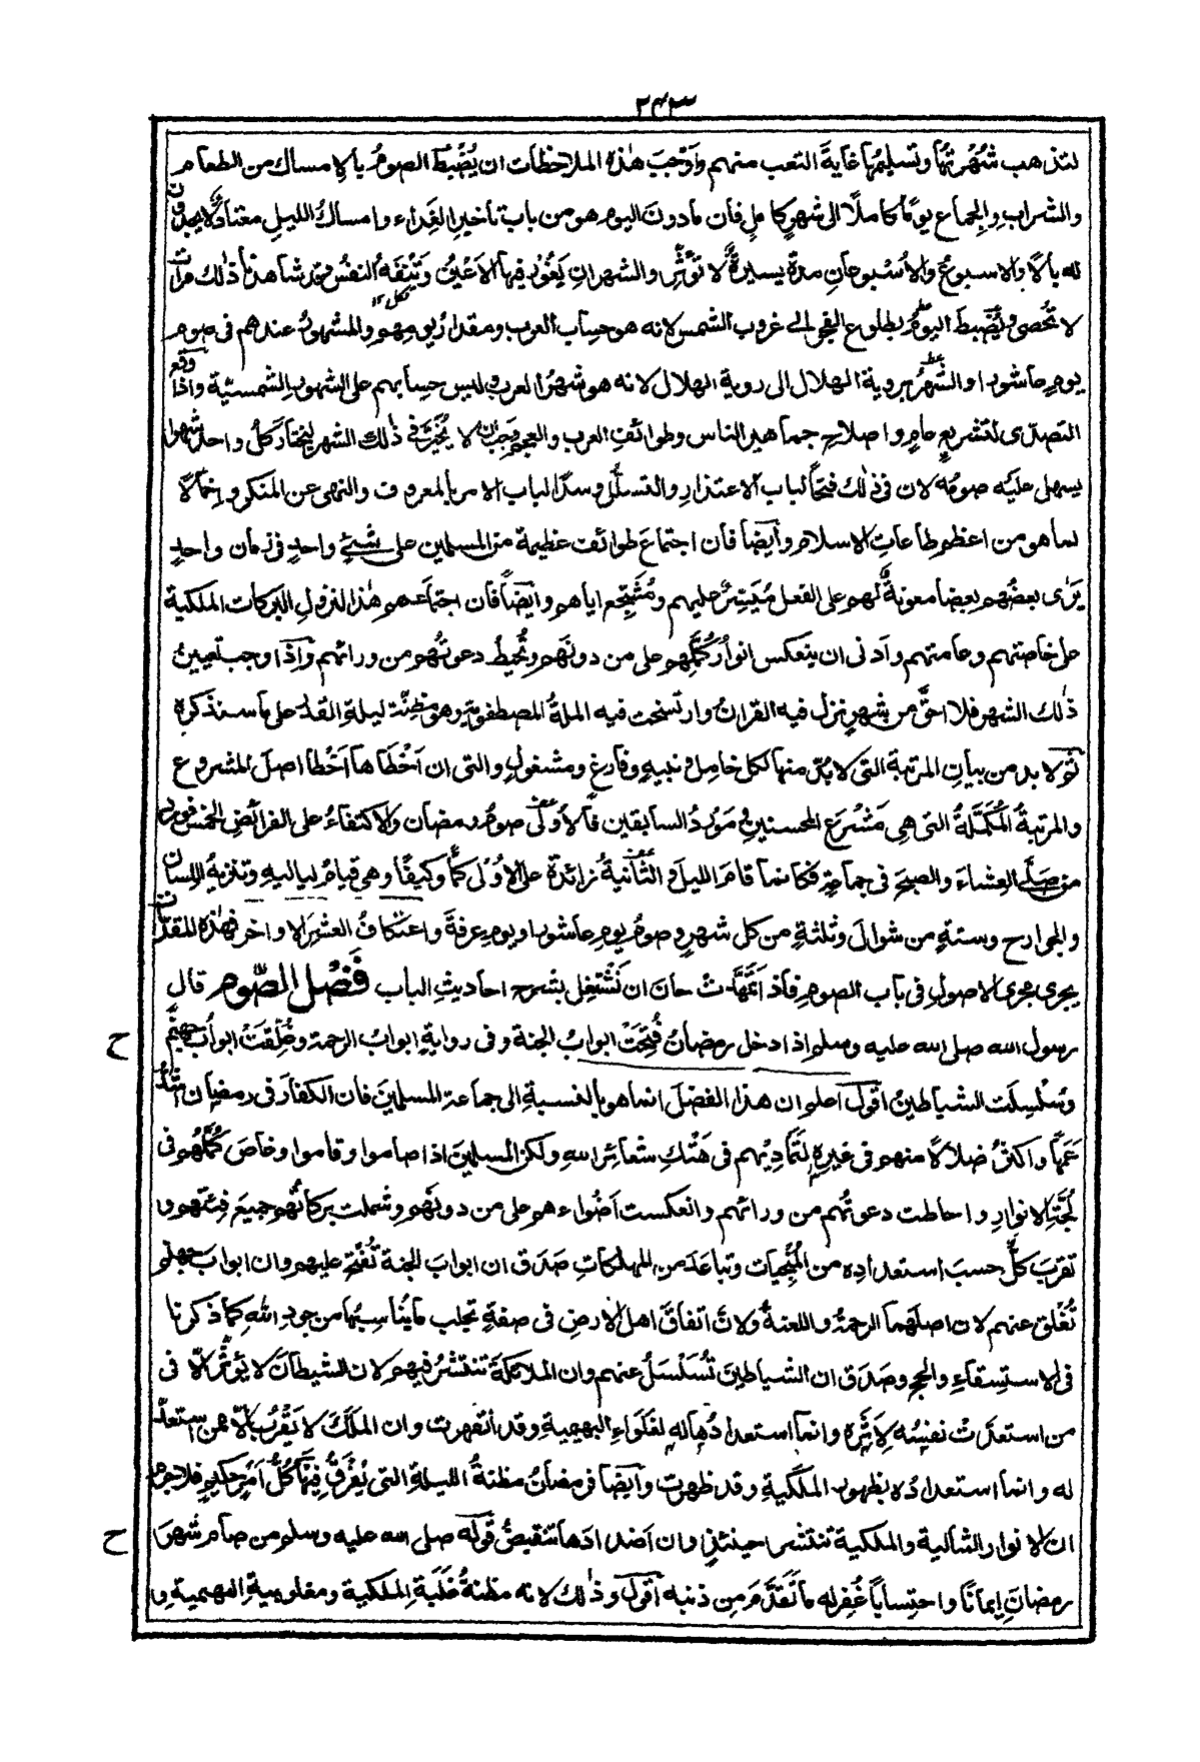 ٢٤٣
لتذهب شهرتها وتسليمها غاية التعب منهم وأوجب هذه الملاحظات ان يُضبط الصوم بالامساك من الطعام
والشراب والجماع يومًا كاملًا الى شهرٍ كاملٍ فان مادون اليوم هو من باب تاخير الغداء وامساك الليل معتاد لا يجدون
له بالًا والاسبوع والأسبوعان مدة يسيرة لا تؤثر والشهران يغور فيها الاعين وتنفه النفس قد شاهدنا ذلك مرات
تكل ١٢
لا تحصى ويُضبط اليوم بطلوع الفجر الى غروب الشمس لانه هو حساب العرب ومقدار يومهم والمشهور عندهم فى صوم
يوم عاشوراء والشهر بروية الهلال الى روية الهلال لانه هو شهر العرب وليس حسابهم على الشهور الشمسية واذا وقع
التصدى لتشريع عام واصلاح جماهير الناس وطوائف العرب والعجم وجب ان لا يُخيّر فى ذلك الشهر ليختار كل واحد شهرا
يسهل عليه صومه لان فى ذلك فتحًا لباب الاعتذار والتسلّل وسدًا لباب الامر بالمعروف والنهى عن المنكر واخمالًا
لما هو من اعظم طاعات الاسلام وأيضًا فان اجتماع طوائف عظيمة من المسلمين على شئ واحدٍ فى زمان واحدٍ
يرى بعضهم بعضا معونة لهم على الفعل مُيسّر عليهم ومُشجّع اياهم وأيضًا فان اجتماعهم هذا لنزول البركات الملكية
على خاصتهم وعامتهم وأدنى ان ينعكس انوار كُمَّلهم على من دونهم وتُحيط دعوتهم من ورائهم واذا وجب تعيين
ذلك الشهر فلا احقَّ من شهرٍ نزل فيه القران وارتسخت فيه الملة المصطفوية وهو مظنّة ليلة القدر على ما سنذكره
ثم لابد من بيان المرتبة التى لا بُدّ منها لكل خامل ونبيه وفارغ ومشغول والتى ان أخطأها أخطأ اصل المشروع
والمرتبة المُكمّلة التى هى مَشرع المحسنين ومَورد السابقين فالأولى صوم رمضان والاكتفاء على الفرائض الخمس فورد
من صلّى العشاء والصبح فى جماعة فكانما قام الليل والثانية زائدة على الأولى كمًّا وكيفًا وهى قيام لياليه وتنزيه اللسان
والجوارح وستة من شوال وثلثة من كل شهر وصوم يوم عاشوراء ويوم عرفة واعتكاف العشر الاواخر فهذه المقدمات
يجرى مجرى الاصول فى باب الصوم فاذا تمهّدت حان ان نشتغل بشرح احاديث الباب فَضْل الصّوم قال
رسول الله صلى الله عليه وسلم اذا دخل رمضان فُتِحَتْ ابواب الجنة وفى رواية ابواب الرحمة وغُلِّقَتْ ابواب جهنّم
ح
وسُلسِلَت الشياطين أقول اعلم ان هذا الفضل انما هو بالنسبة الى جماعة المسلمين فان الكفار فى رمضان اشدُّ
عَمَهًا واكثر ضلالًا منهم فى غيره لتماديهم فى هَتْكِ شعائر الله ولكن المسلمين اذا صاموا وقاموا وخاض كُمَّلُهم فى
لُجّة الانوار واحاطت دعوتهم من ورائهم وانعكست أضواءهم على من دونهم وشملت بركاتهم جميع فئتهم و
تقرب كلٌّ حسب استعداده من المُنجيات وتباعد من المهلكات صَدَق ان ابواب الجنة تُفتَح عليهم وان ابواب جهنم
تُغلق عنهم لان اصلهما الرحمة واللعنة ولان اتفاق اهل الارض فى صفة تجلب ما يُناسبها من جود الله كما ذكرنا
فى الاستسقاء والحج وصَدَق ان الشياطين تُسَلسَلُ عنهم وان الملائكة تنتشر فيهم لان الشيطان لا يؤثر الّا فى
من استعدّت نفسه لاثره وانما استعدادها له لغلواء البهيمية وقد انقهرت وان الملك لا يقرب الّا ممن استعدّ
له وانما استعداده بظهور الملكية وقد ظهرت وأيضًا فرمضان مظنة الليلة التى يُفرق فيها كلُّ أمرٍ حكيم فلاجرم
ان الانوار المثالية والملكية تنتشر حينئذٍ وان اضدادها تنقبض قوله صلى الله عليه وسلم من صام شهر
ح
رمضان إيمانًا واحتسابًا غُفر له ما تَقدَّمَ من ذنبه أقول وذلك لانه مظنة غَلَبة الملكية ومغلوبية البهيمية و